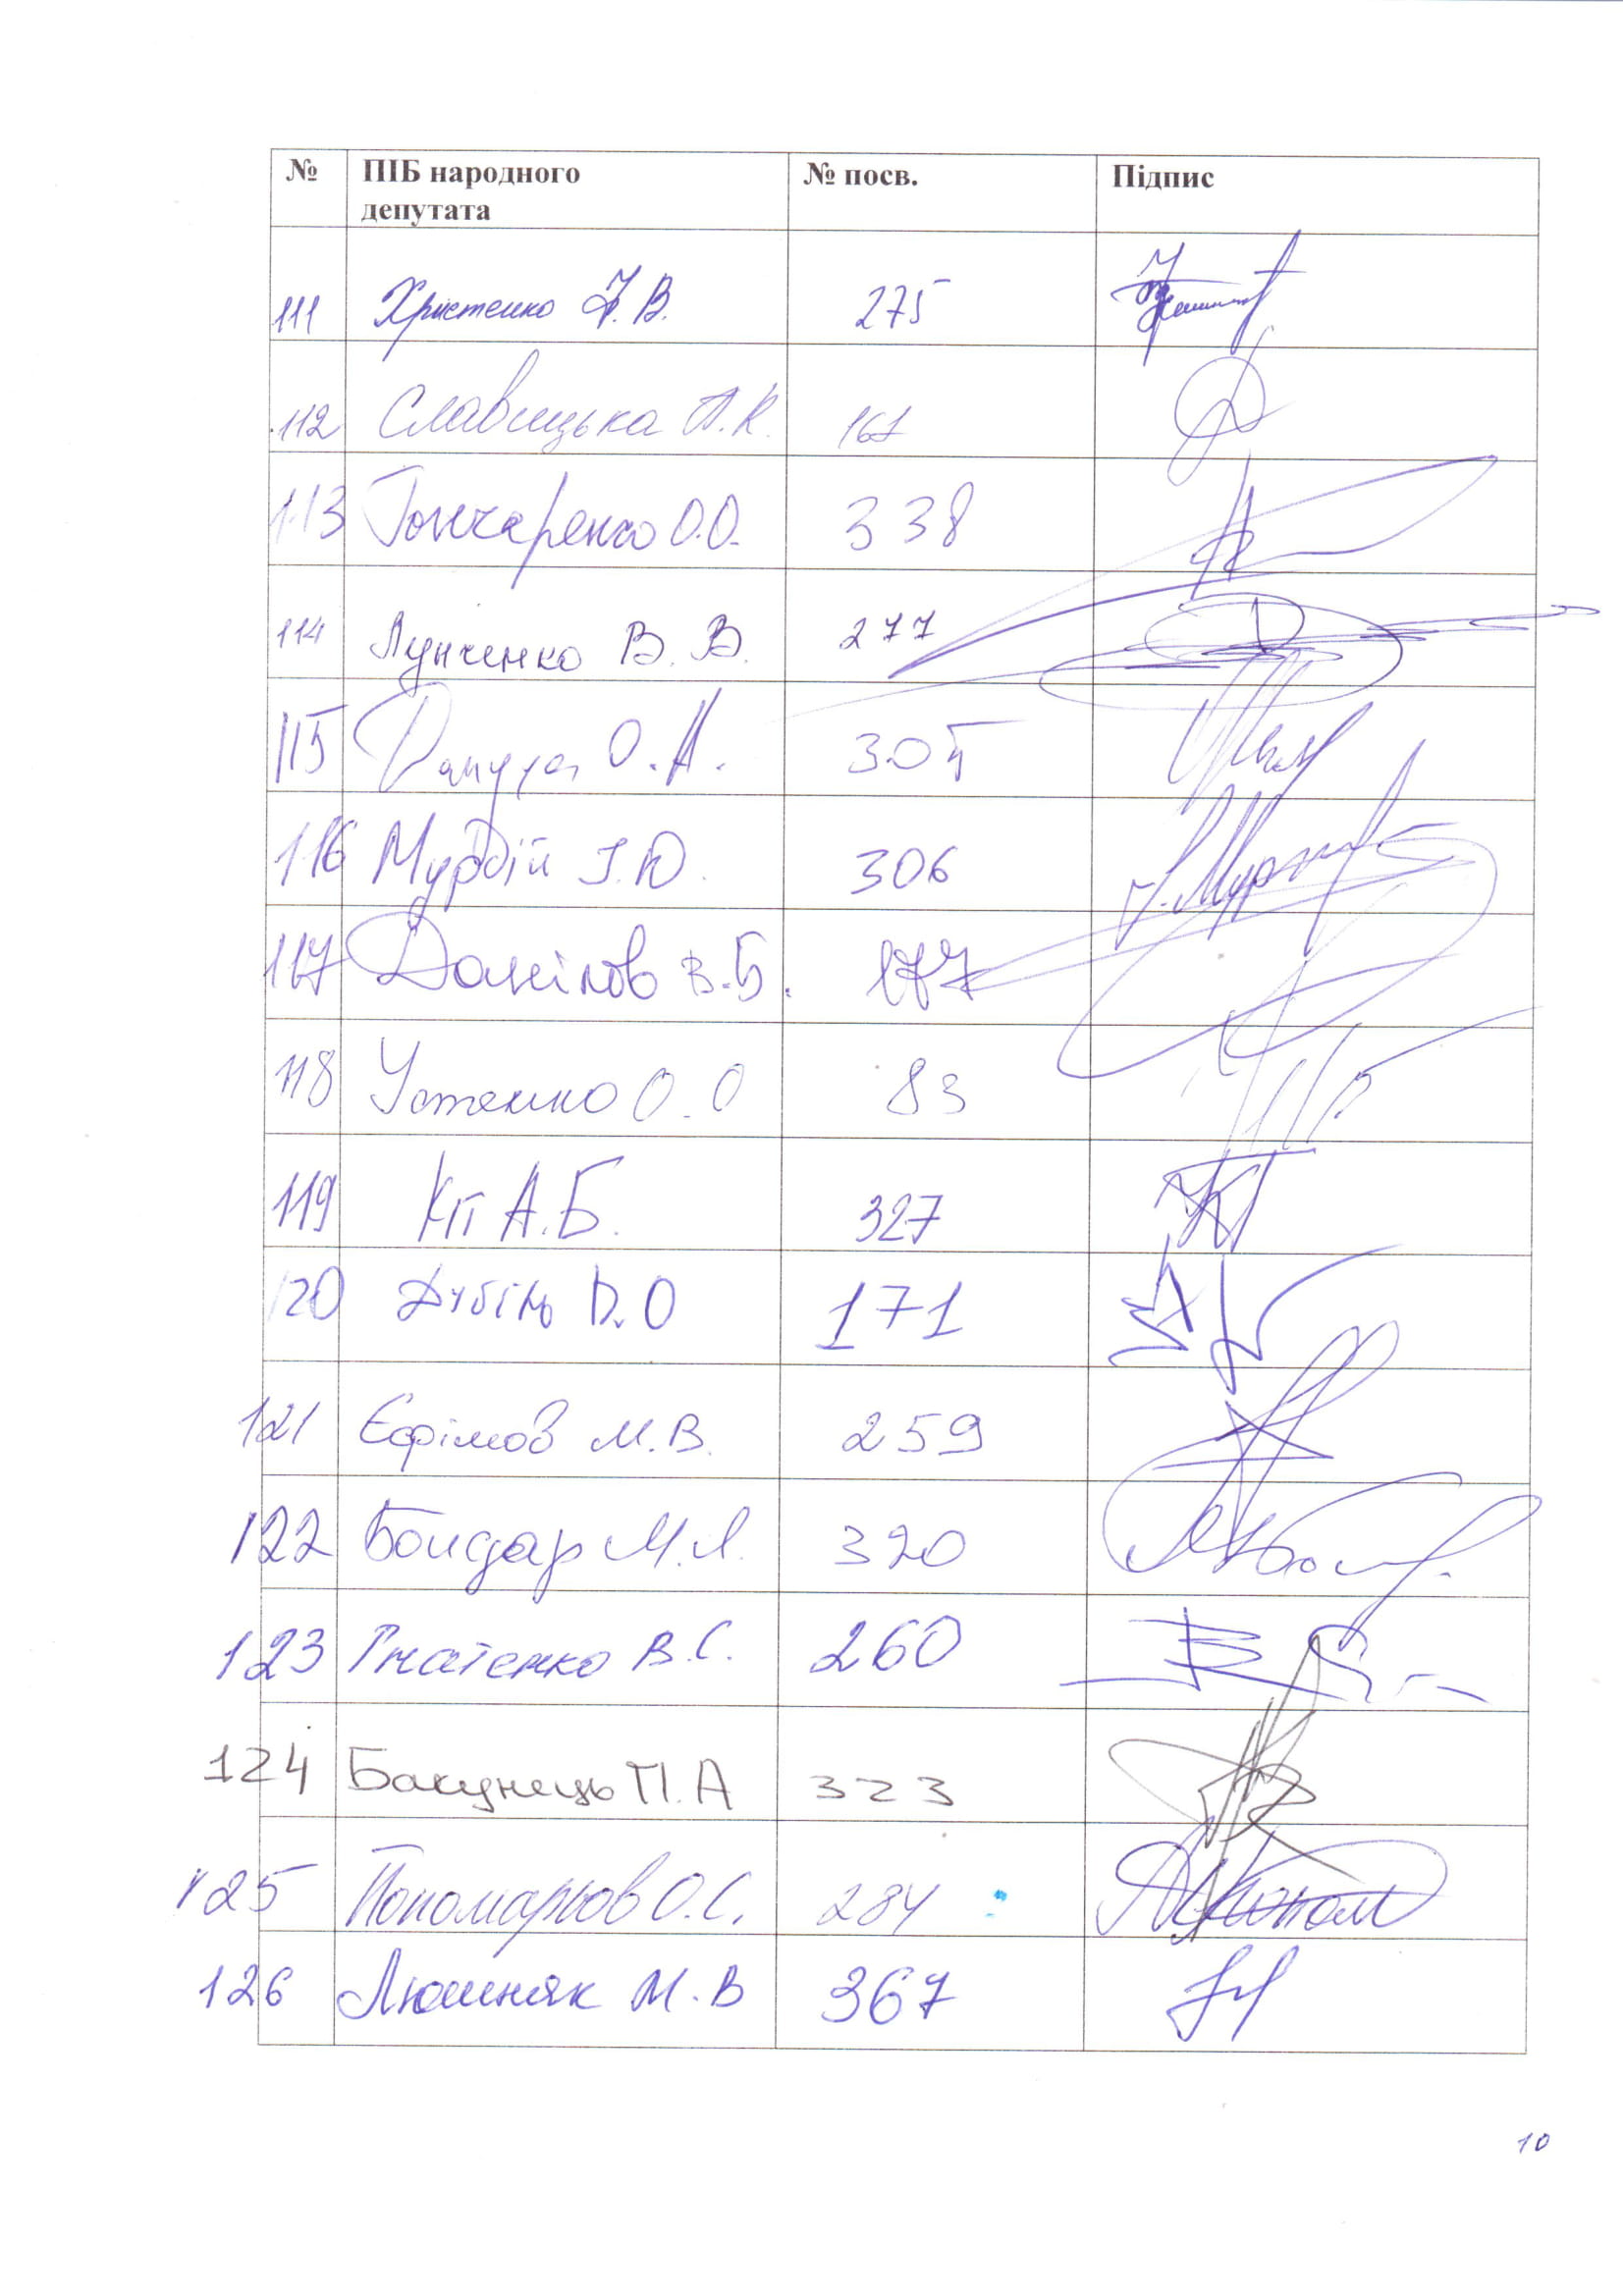 № ПІБ народного депутата № посв. Підпис
111 Хрістенко Ф.В. 275
112 Славицька А.К. 167
113 Гончаренко О.О. 338
114 Лунченко В.В. 277
115 О.А. 305
116 Мурдій І.Ю. 306
117 Данілов В.Б. 177
118 Устенко О.О 83
119 Кіт А.Б. 327
120 Дубінь Д.О 171
121 Єфімов М.В. 259
122 Бондар М.Л. 320
123 Гнатенко В.С. 260
124 Бакунець П.А 323
125 Пономарьов О.С. 284
126 Люшняк М.В 367
10